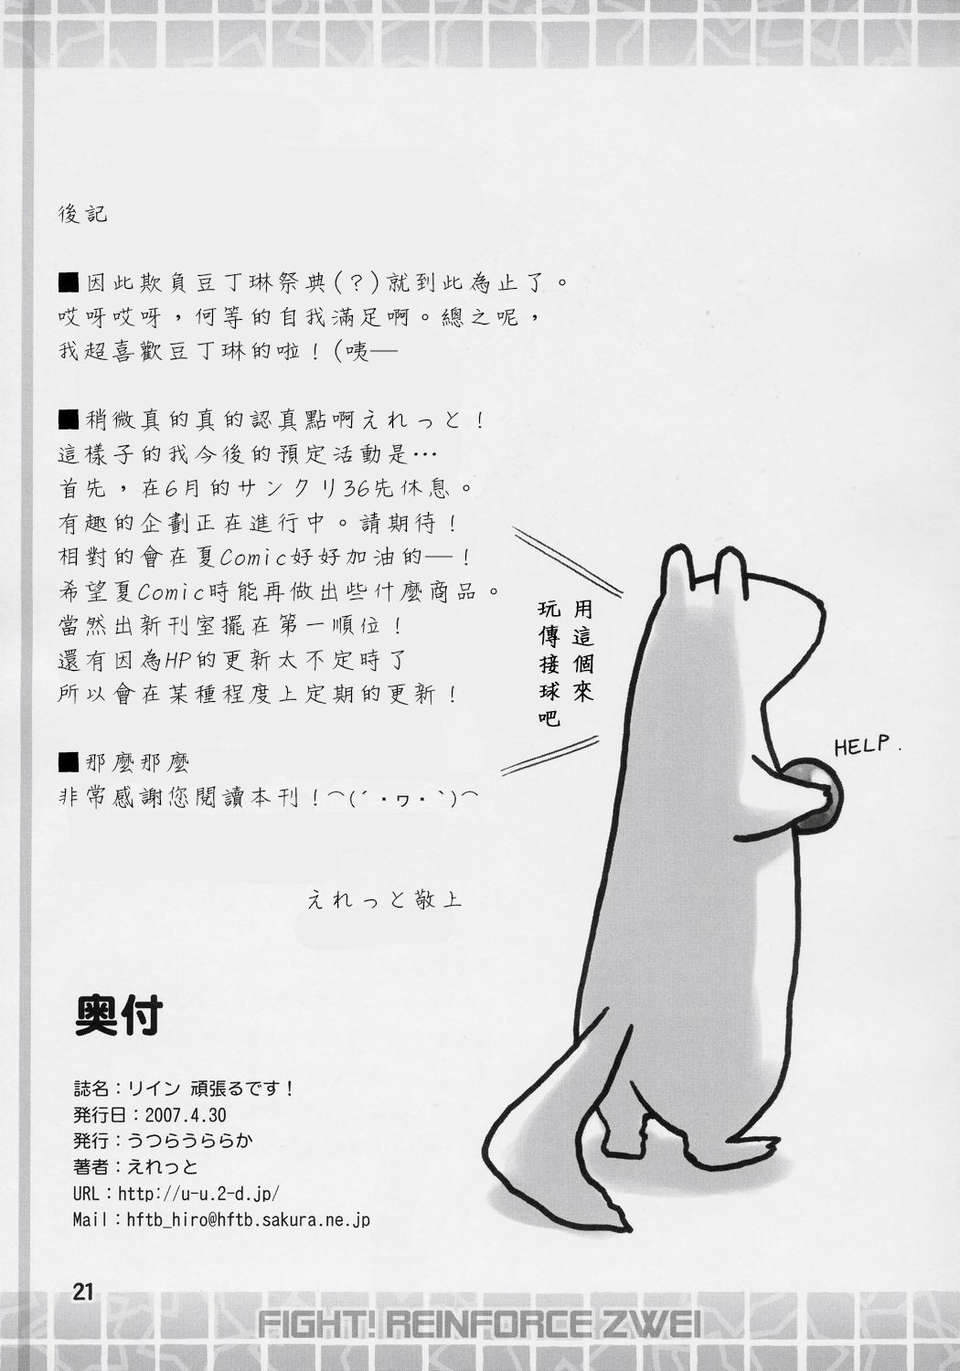 後記
■因此欺負豆丁琳祭典(？)就到此為止了。
哎呀哎呀，何等的自我滿足啊。總之呢，
我超喜歡豆丁琳的啦！(咦——
■稍微真的真的認真點啊えれっと！
這樣子的我今後的預定活動是…
首先，在6月的サンクリ36先休息。
有趣的企劃正在進行中。請期待！
相對的會在夏Comic好好加油的—！
希望夏Comic時能再做出些什麼商品。
當然出新刊室擺在第一順位！
還有因為HP的更新太不定時了
所以會在某種程度上定期的更新！
■那麼那麼
非常感謝您閱讀本刊！⌒(´・ヮ・`)⌒
えれっと敬上
用這個來
玩傳接球吧
HELP.
奥付
誌名：リイン 頑張るです！
発行日：2007.4.30
発行：うつらうららか
著者：えれっと
URL：http://u-u.2-d.jp/
Mail：hftb_hiro@hftb.sakura.ne.jp
21
FIGHT! REINFORCE ZWEI